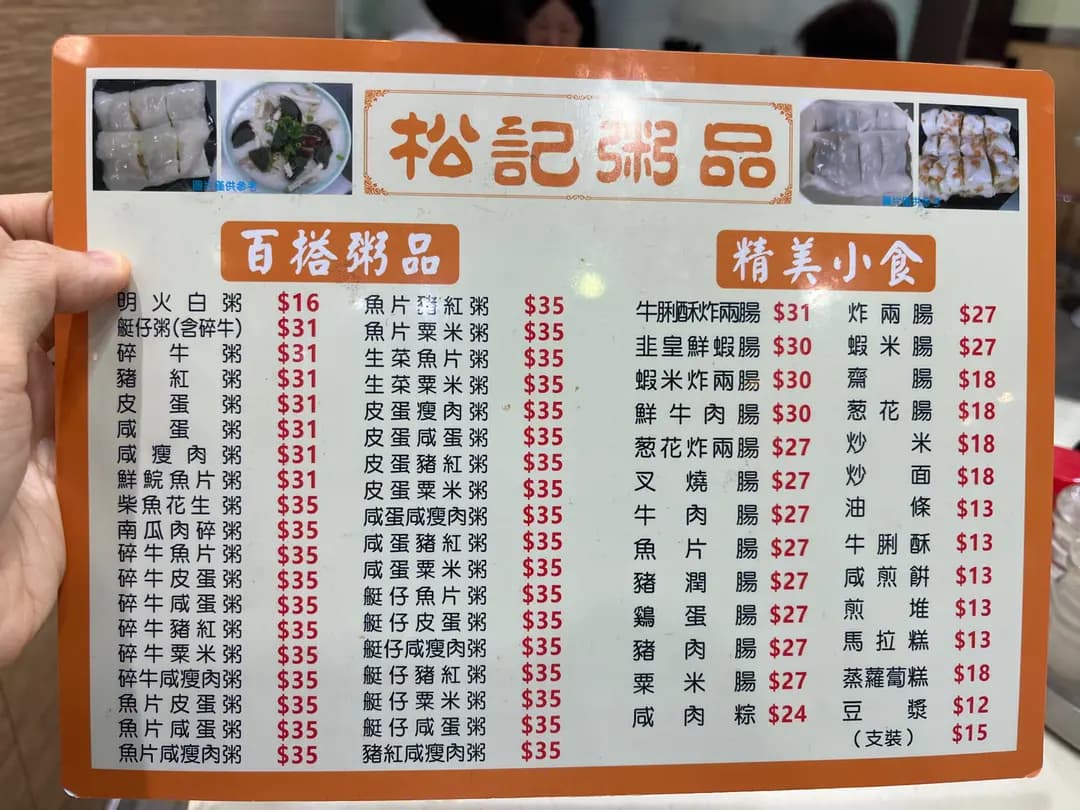 松記粥品
圖片僅供參考
百搭粥品
明火白粥 $16
艇仔粥(含碎牛) $31
碎牛粥 $31
豬紅粥 $31
皮蛋粥 $31
咸蛋粥 $31
咸瘦肉粥 $31
鮮鯇魚片粥 $31
柴魚花生粥 $35
南瓜肉碎粥 $35
碎牛魚片粥 $35
碎牛皮蛋粥 $35
碎牛咸蛋粥 $35
碎牛豬紅粥 $35
碎牛粟米粥 $35
碎牛咸瘦肉粥 $35
魚片皮蛋粥 $35
魚片咸蛋粥 $35
魚片咸瘦肉粥 $35
魚片豬紅粥 $35
魚片粟米粥 $35
生菜魚片粥 $35
生菜粟米粥 $35
皮蛋瘦肉粥 $35
皮蛋咸蛋粥 $35
皮蛋豬紅粥 $35
皮蛋粟米粥 $35
咸蛋咸瘦肉粥 $35
咸蛋豬紅粥 $35
咸蛋粟米粥 $35
艇仔魚片粥 $35
艇仔皮蛋粥 $35
艇仔咸瘦肉粥 $35
艇仔豬紅粥 $35
艇仔粟米粥 $35
艇仔咸蛋粥 $35
豬紅咸瘦肉粥 $35
精美小食
牛脷酥炸兩腸 $31
韭皇鮮蝦腸 $30
蝦米炸兩腸 $30
鮮牛肉腸 $30
葱花炸兩腸 $27
叉燒腸 $27
牛肉腸 $27
魚片腸 $27
豬潤腸 $27
鷄蛋腸 $27
豬肉腸 $27
粟米腸 $27
咸肉粽 $24
炸兩腸 $27
蝦米腸 $27
齋腸 $18
葱花腸 $18
炒米 $18
炒面 $18
油條 $13
牛脷酥 $13
咸煎餅 $13
煎堆 $13
馬拉糕 $13
蒸蘿蔔糕 $18
豆漿 $12
(支裝) $15